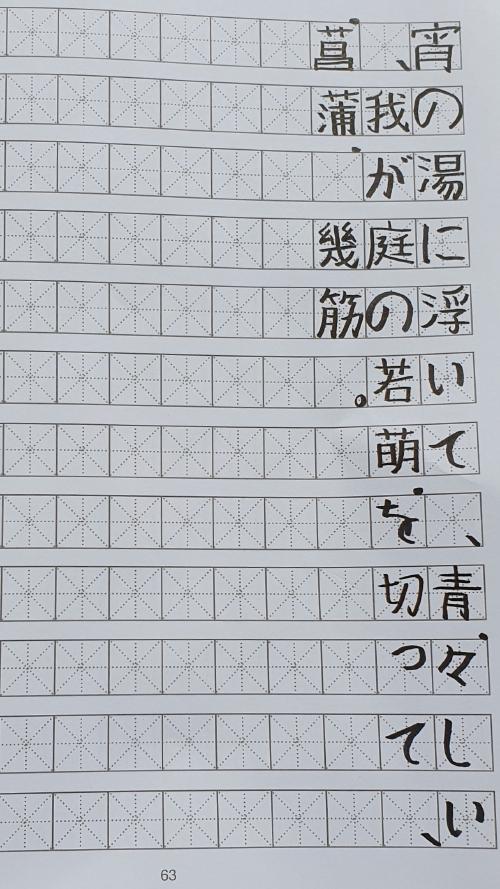 宵の湯に浮いて、青々しい
、我が庭の若萌を切って、
菖蒲　幾筋。
63